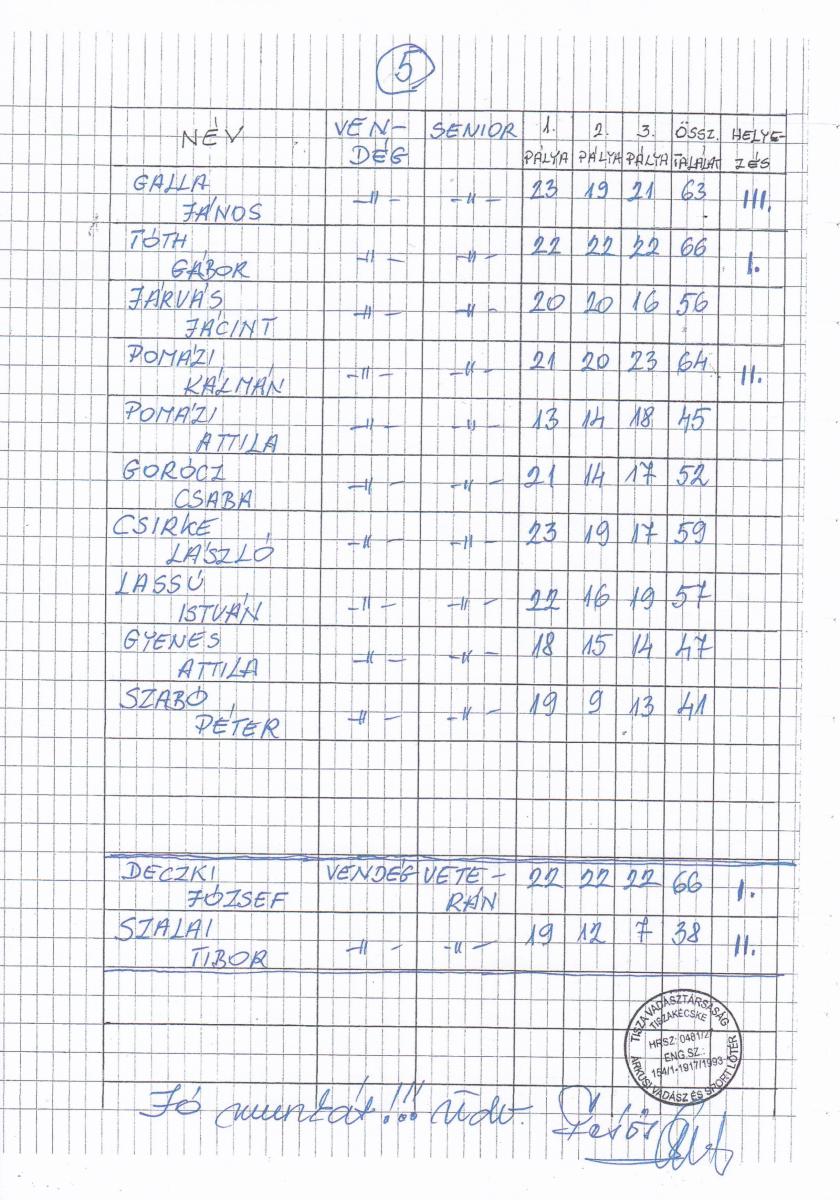 5
NÉV VEN-DÉG SENIOR 1. PÁLYA 2. PÁLYA 3. PÁLYA ÖSSZ. TALÁLAT HELYE-ZÉS
GALLA JÁNOS -"- -"- 23 19 21 63 III.
TÓTH GÁBOR -"- -"- 22 22 22 66 I.
JÁRVÁS JÁCINT -"- -"- 20 20 16 56
POMÁZI KÁLMÁN -"- -"- 21 20 23 64 II.
POMÁZI ATTILA -"- -"- 13 14 18 45
GORÓCZ CSABA -"- -"- 21 14 17 52
CSIRKE LÁSZLÓ -"- -"- 23 19 17 59
LASSÚ ISTVÁN -"- -"- 22 16 19 57
GYENES ATTILA -"- -"- 18 15 14 47
SZABÓ PÉTER -"- -"- 19 9 13 41
DECZKI JÓZSEF VENDÉG VETE-RÁN 22 22 22 66 I.
SZALAI TIBOR -"- -"- 19 12 7 38 II.
TISZA VADÁSZTÁRSASÁG
TISZAKÉCSKE
HRSZ: 0481/2
ENG.SZ.:
154/1-1917/1993
ÁRKUSI VADÁSZ ÉS SPORT LŐTÉR
Jó munkát!!! Üdv.